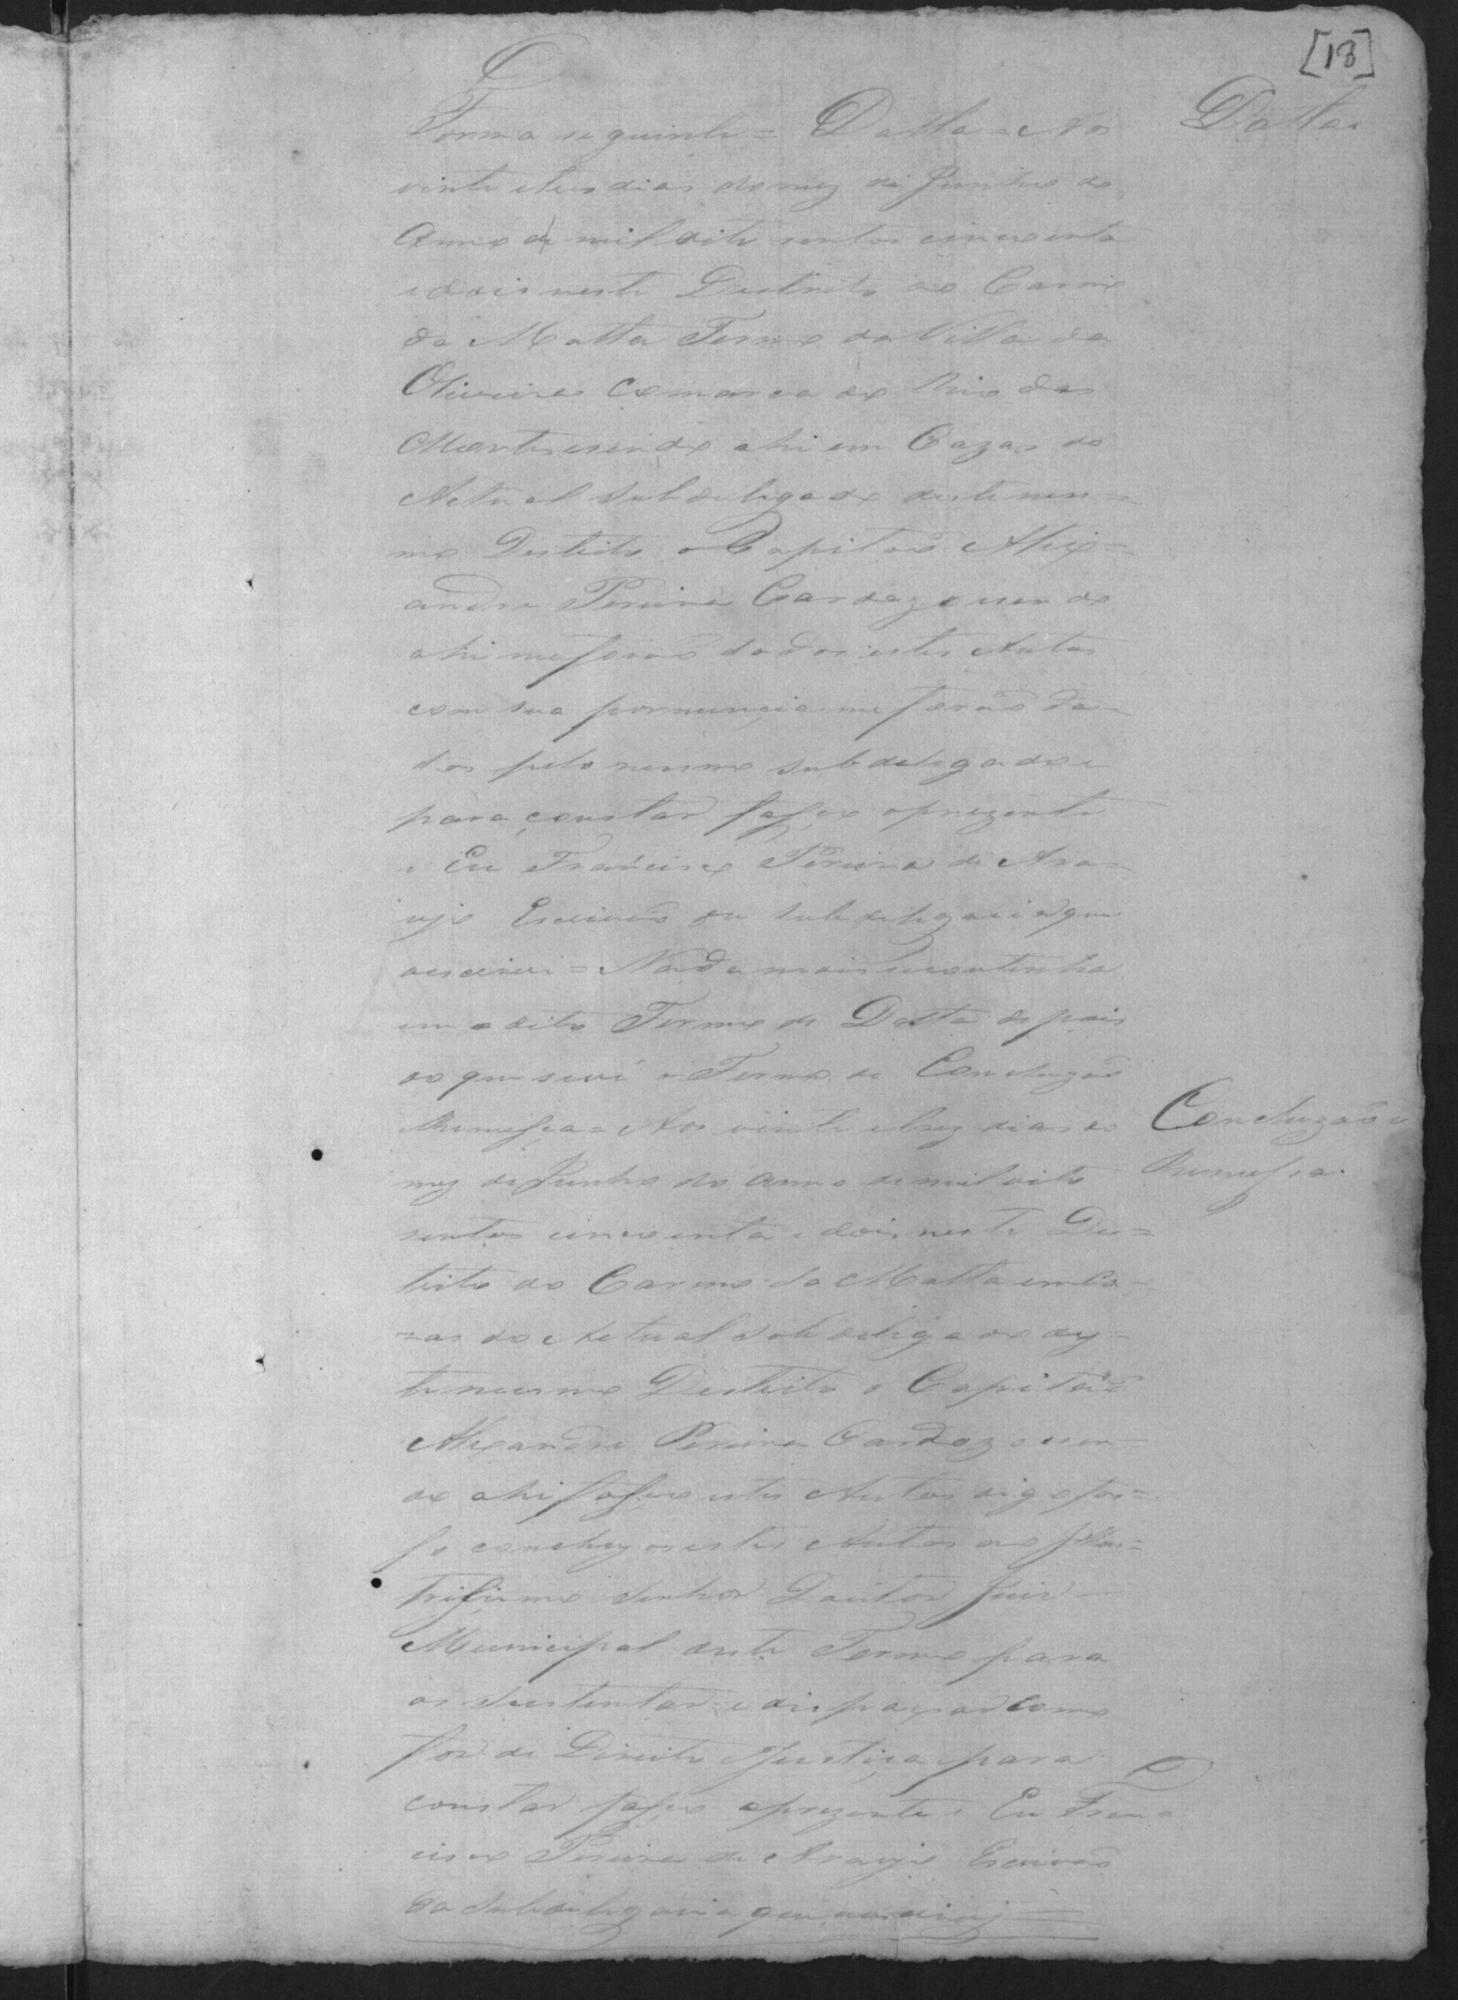 [13]
Forma seguinte = Datta = Aos
Datta.
vinte e tres dias do mez de Junho do
Anno de mil oito sentos cincoenta
e dois neste Destrito do Carmo
da Matta Termo da Villa da
Oliveira Comarca do Rio das
Mortes sendo ahi em Cazas do
Actual Subdelegado deste mes=
mo Destrito o Capitaõ Alix=
andre Pereira Cardozo sendo
ahi me foraõ dados estes Autos
com sua pornuncia me foraõ da=
dos pelo mesmo subdelegado e
para constar fasso o prezente
e Eu Francisco Pereira de Ara=
ujo Escrivaõ da Subdelegacia que
o escrivi = Nada mais se continha
em o dito Termo de Datta depois
do que se vi o Termo de Concluzaõ
e Remessa = Aos vinte e trez dias do
Concluzaõ e
Remessa.
mez de Junho do Anno de mil oito
sentos cincoenta e dois neste Des=
trito do Carmo da Matta em Ca=
zas do Actual Subdelegado des=
te mesmo Destrito o Capitaõ
Alixandre Pereira Cardozo sen=
do ahi fasso estes Autos digo fas=
so concluzos estes Autos ao Illus=
trissimo Senhor Doutor Juiz
Municipal deste Termo para
os sustentar e dispaxar como
for de Direito e Justiça e para
constar fasso o prezente e Eu Fran=
cisco Pereira de Araujo Escrivaõ
da Subdelegacia que o escrivi =